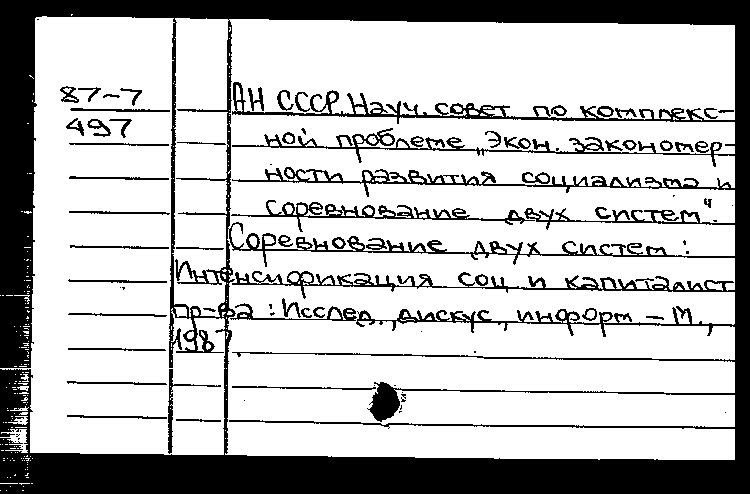 87-7 АН СССР. Науч. совет по комплекс-
497 ной проблеме „Экон. закономер-
ности развития социализма и
соревнование двух систем".
Соревнование двух систем:
Интенсификация соц и капиталист
пр-ва: Исслед., дискус., информ - М.,
1987.